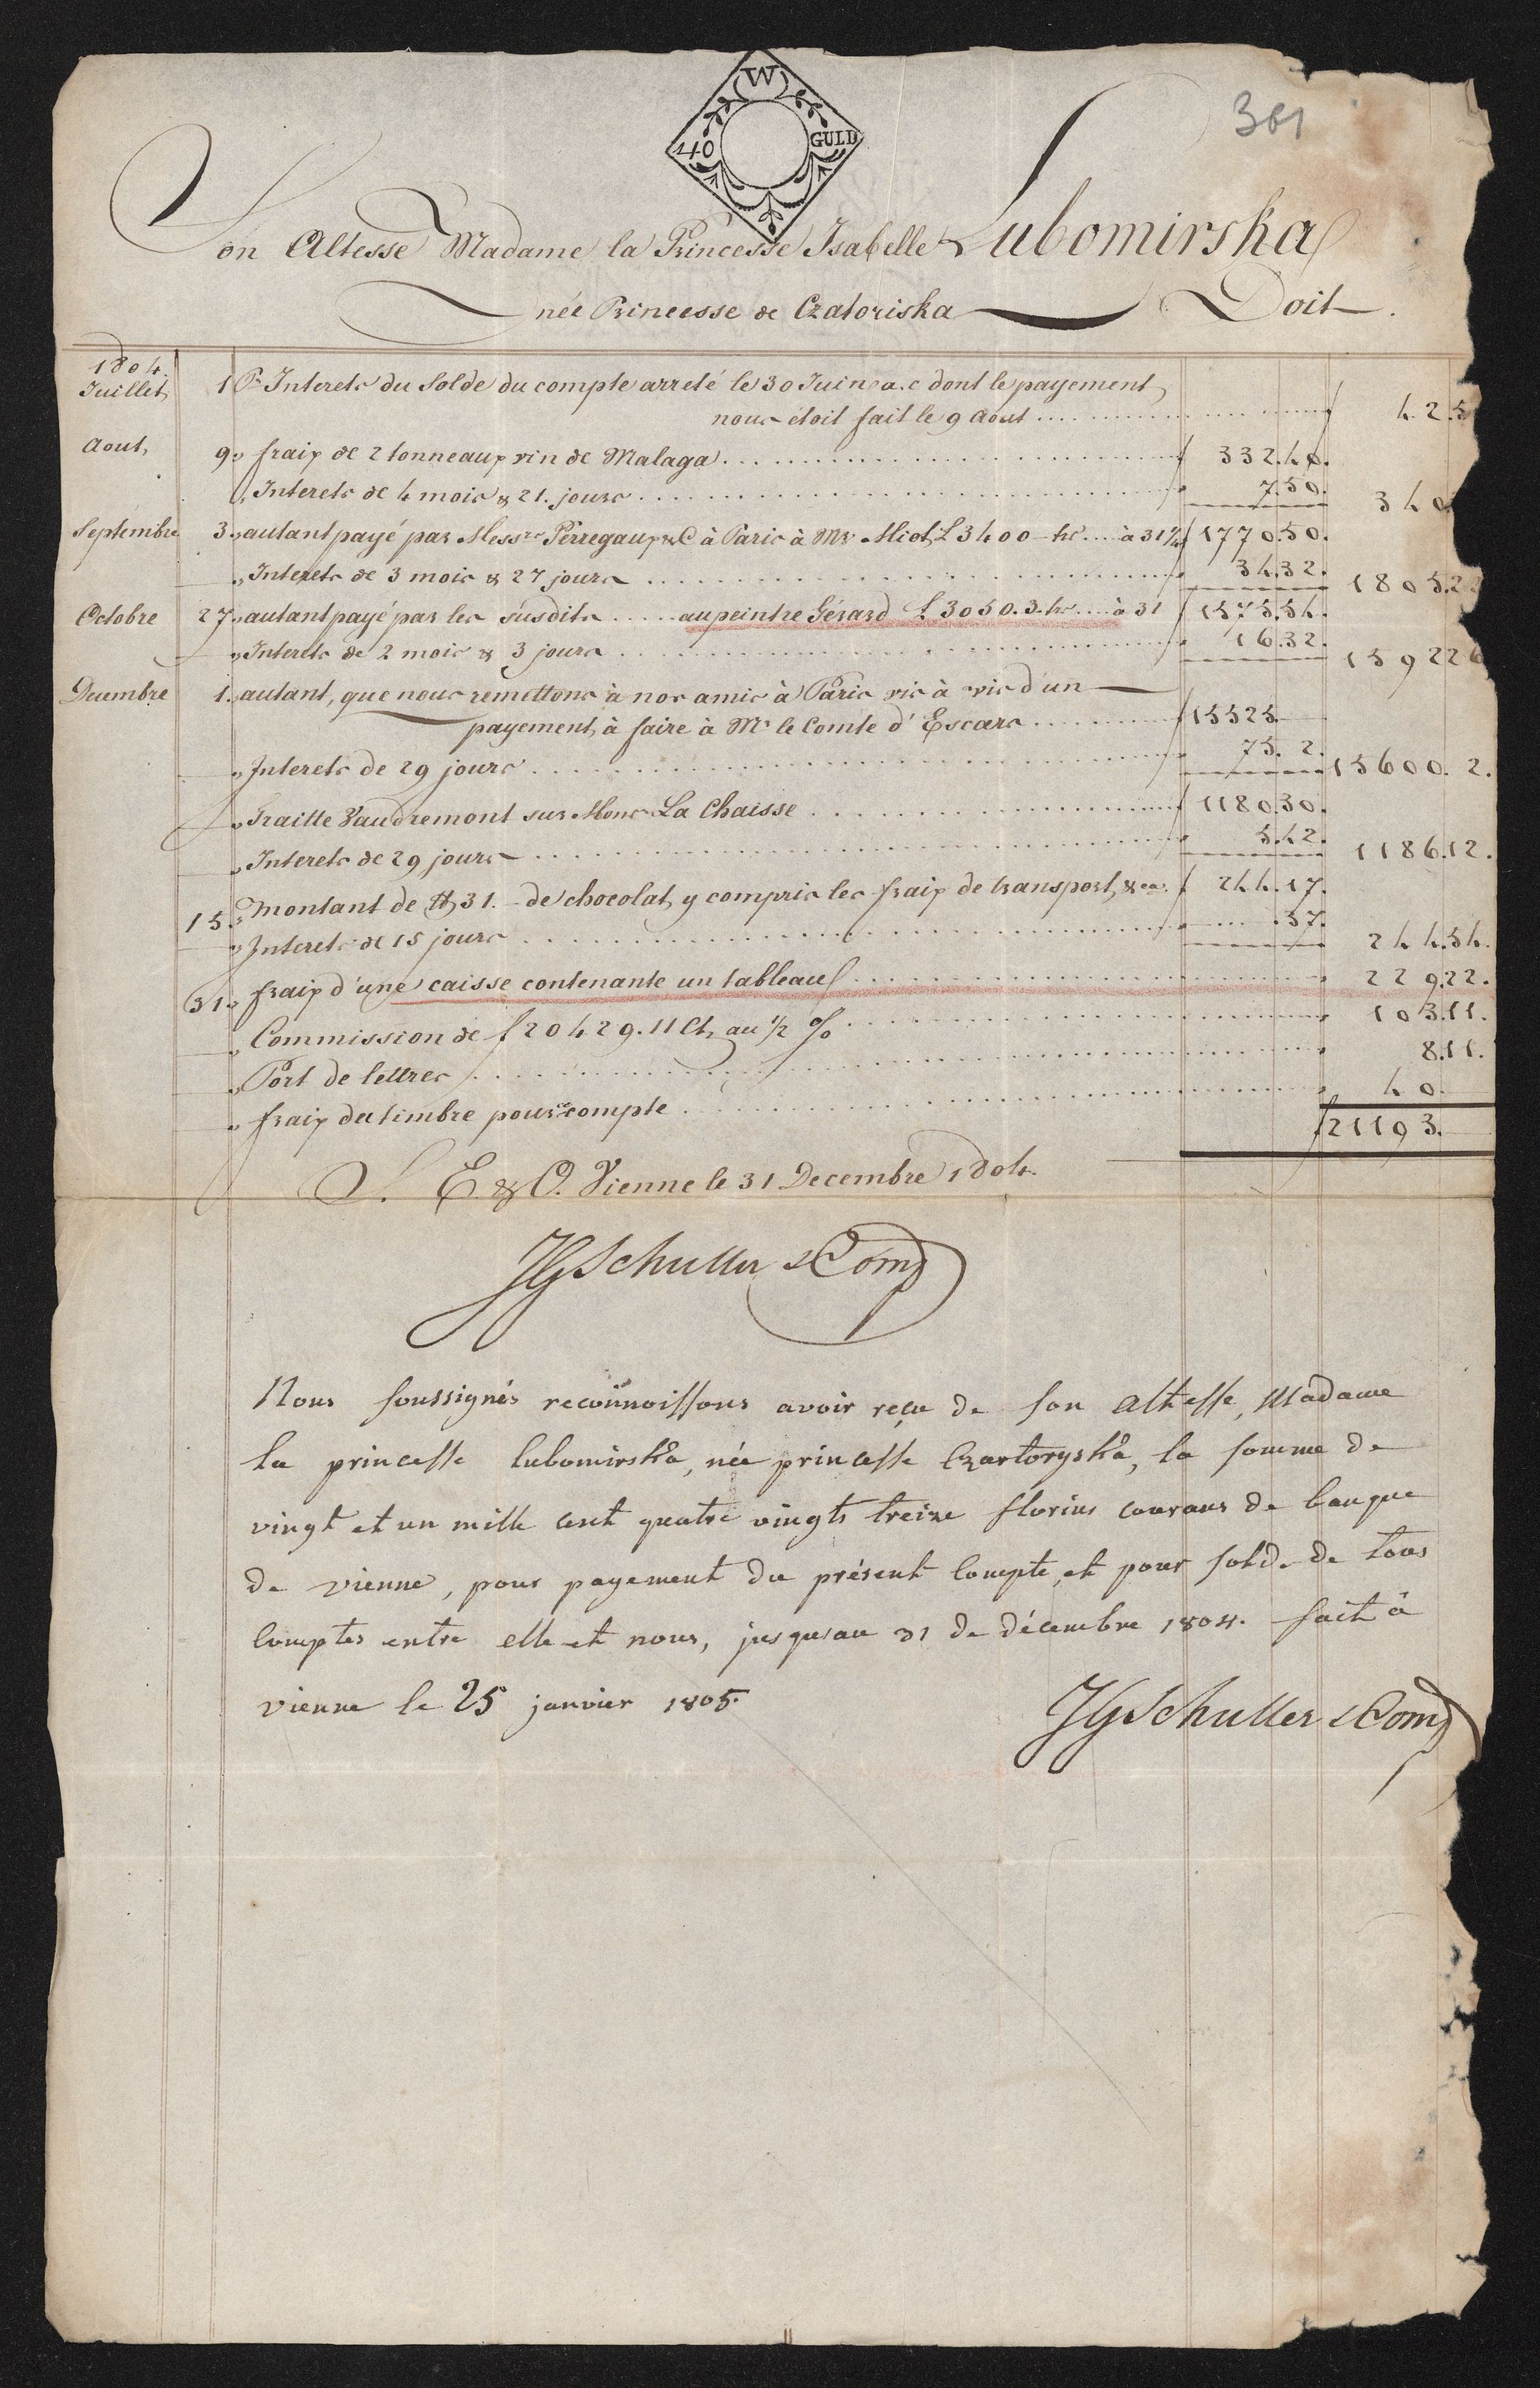 W
40 GULD
361
Son Altesse Madame la Princesse Isabelle Lubomirska
née Princesse de Czatoriska Doit
1804.
Juillet 1 Pr Interets du Solde du compte arreté le 30 Juin a.c dont le payement
nous étoit fait le 9 Aout f 42.5
Aout 9 „ fraix de 2 tonneaux vin de Malaga f 332.40.
„ Interets de 4 mois & 21. jours „ 7.50. 340
Septembre 3. „ autant payé par Messrs Perregaux & C à Paris à Mr Miot £ 3400 – ts à 31¼ f 1770.50.
„ Interets de 3 mois & 27 jours „ 34.32. 1805.2
Octobre 27. „ autant payé par les susdits au peintre Gérard £ 3050.3. ts à 31 f 1575.54.
„ Interets de 2 mois & 3 jours „ 16.32. 1592 26
Decembre 1. „ autant, que nous remettons à nos amis à Paris vis à vis d'un
payement à faire à Mr le Comte d'Escars f 15525.
„ Interets de 29 jours „ 75. 2. 15600. 2.
„ Traitte Vaudremont sur Mons La Chaisse f 1180.30.
„ Interets de 29 jours „ 5.42. 1186.12.
15. „ Montant de ℔ 31. de chocolat, y compris les fraix de transport, & ca. f 244.17.
„ Interets de 15 jours „ .37. 244.54.
31. „ fraix d'une caisse contenante un tableau „ 229.22.
„ Commission de f 20429.11 Ct. au ½ % „ 103.11.
„ Port de lettres „ 8.11.
„ fraix du timbre pour ce compte „ 40.
f 21193.
S. E. & O. Vienne le 31 Decembre 1804.
JG Schuller & Comp
Nous soussignés reconnoissons avoir reçu de son altesse, Madame
la princesse lubomirska, née princesse Czartoryska, la somme de
vingt et un mille cent quatre vingts treize florins courans de banque
de vienne, pour payement du présent Compte, et pour solde de tous
Comptes entre elle et nous, jusqu'au 31 de décembre 1804. fait à
vienne le 25 janvier 1805.
JG Schuller & Comp